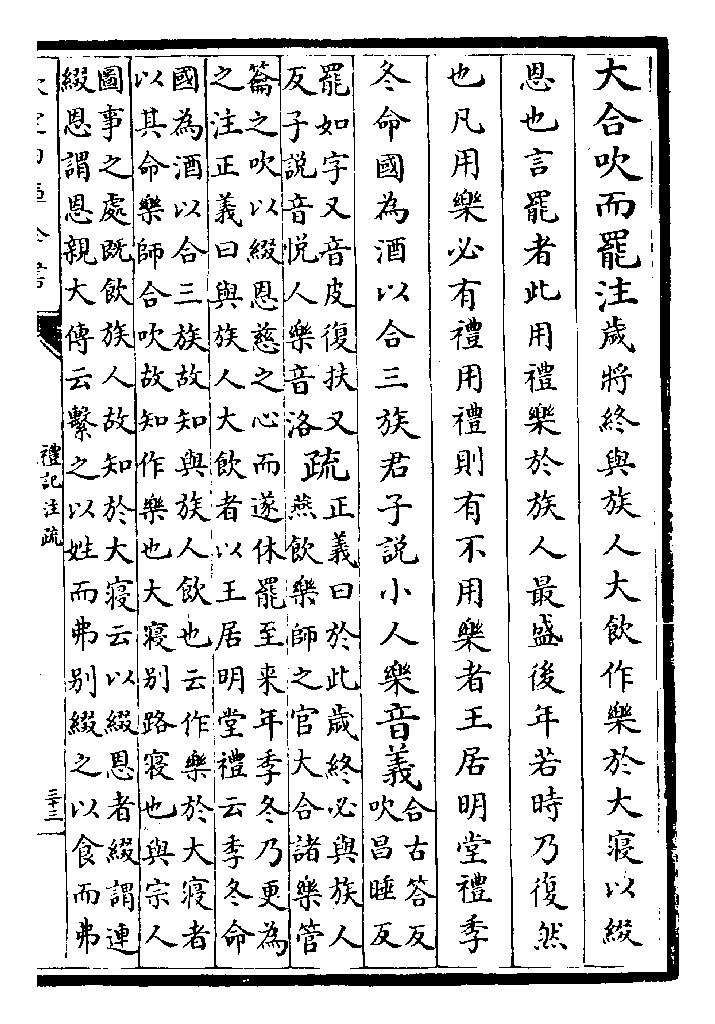 大合吹而罷注歲將終與族人大飲作樂於大寢以綴
恩也言罷者此用禮樂於族人最盛後年若時乃復然
也凡用樂必有禮用禮則有不用樂者王居明堂禮季
冬命國為酒以合三族君子說小人樂音義
合古荅反
吹昌睡反
罷如字又音皮復扶又
反子説音悦人樂音洛
疏
正義曰於此歲終必與族人
燕飲樂師之官大合諸樂管
籥之吹以綴恩慈之心而遂休罷至来年季冬乃更為
之注正義曰與族人大飲者以王居明堂禮云季冬命
國為酒以合三族故知與族人飲也云作樂於大寢者
以其命樂師合吹故知作樂也大寢别路寢也與宗人
圖事之處既飲族人故知於大寢云以綴恩者綴謂連
綴恩謂恩親大傳云繫之以姓而弗别綴之以食而弗
禮記注疏